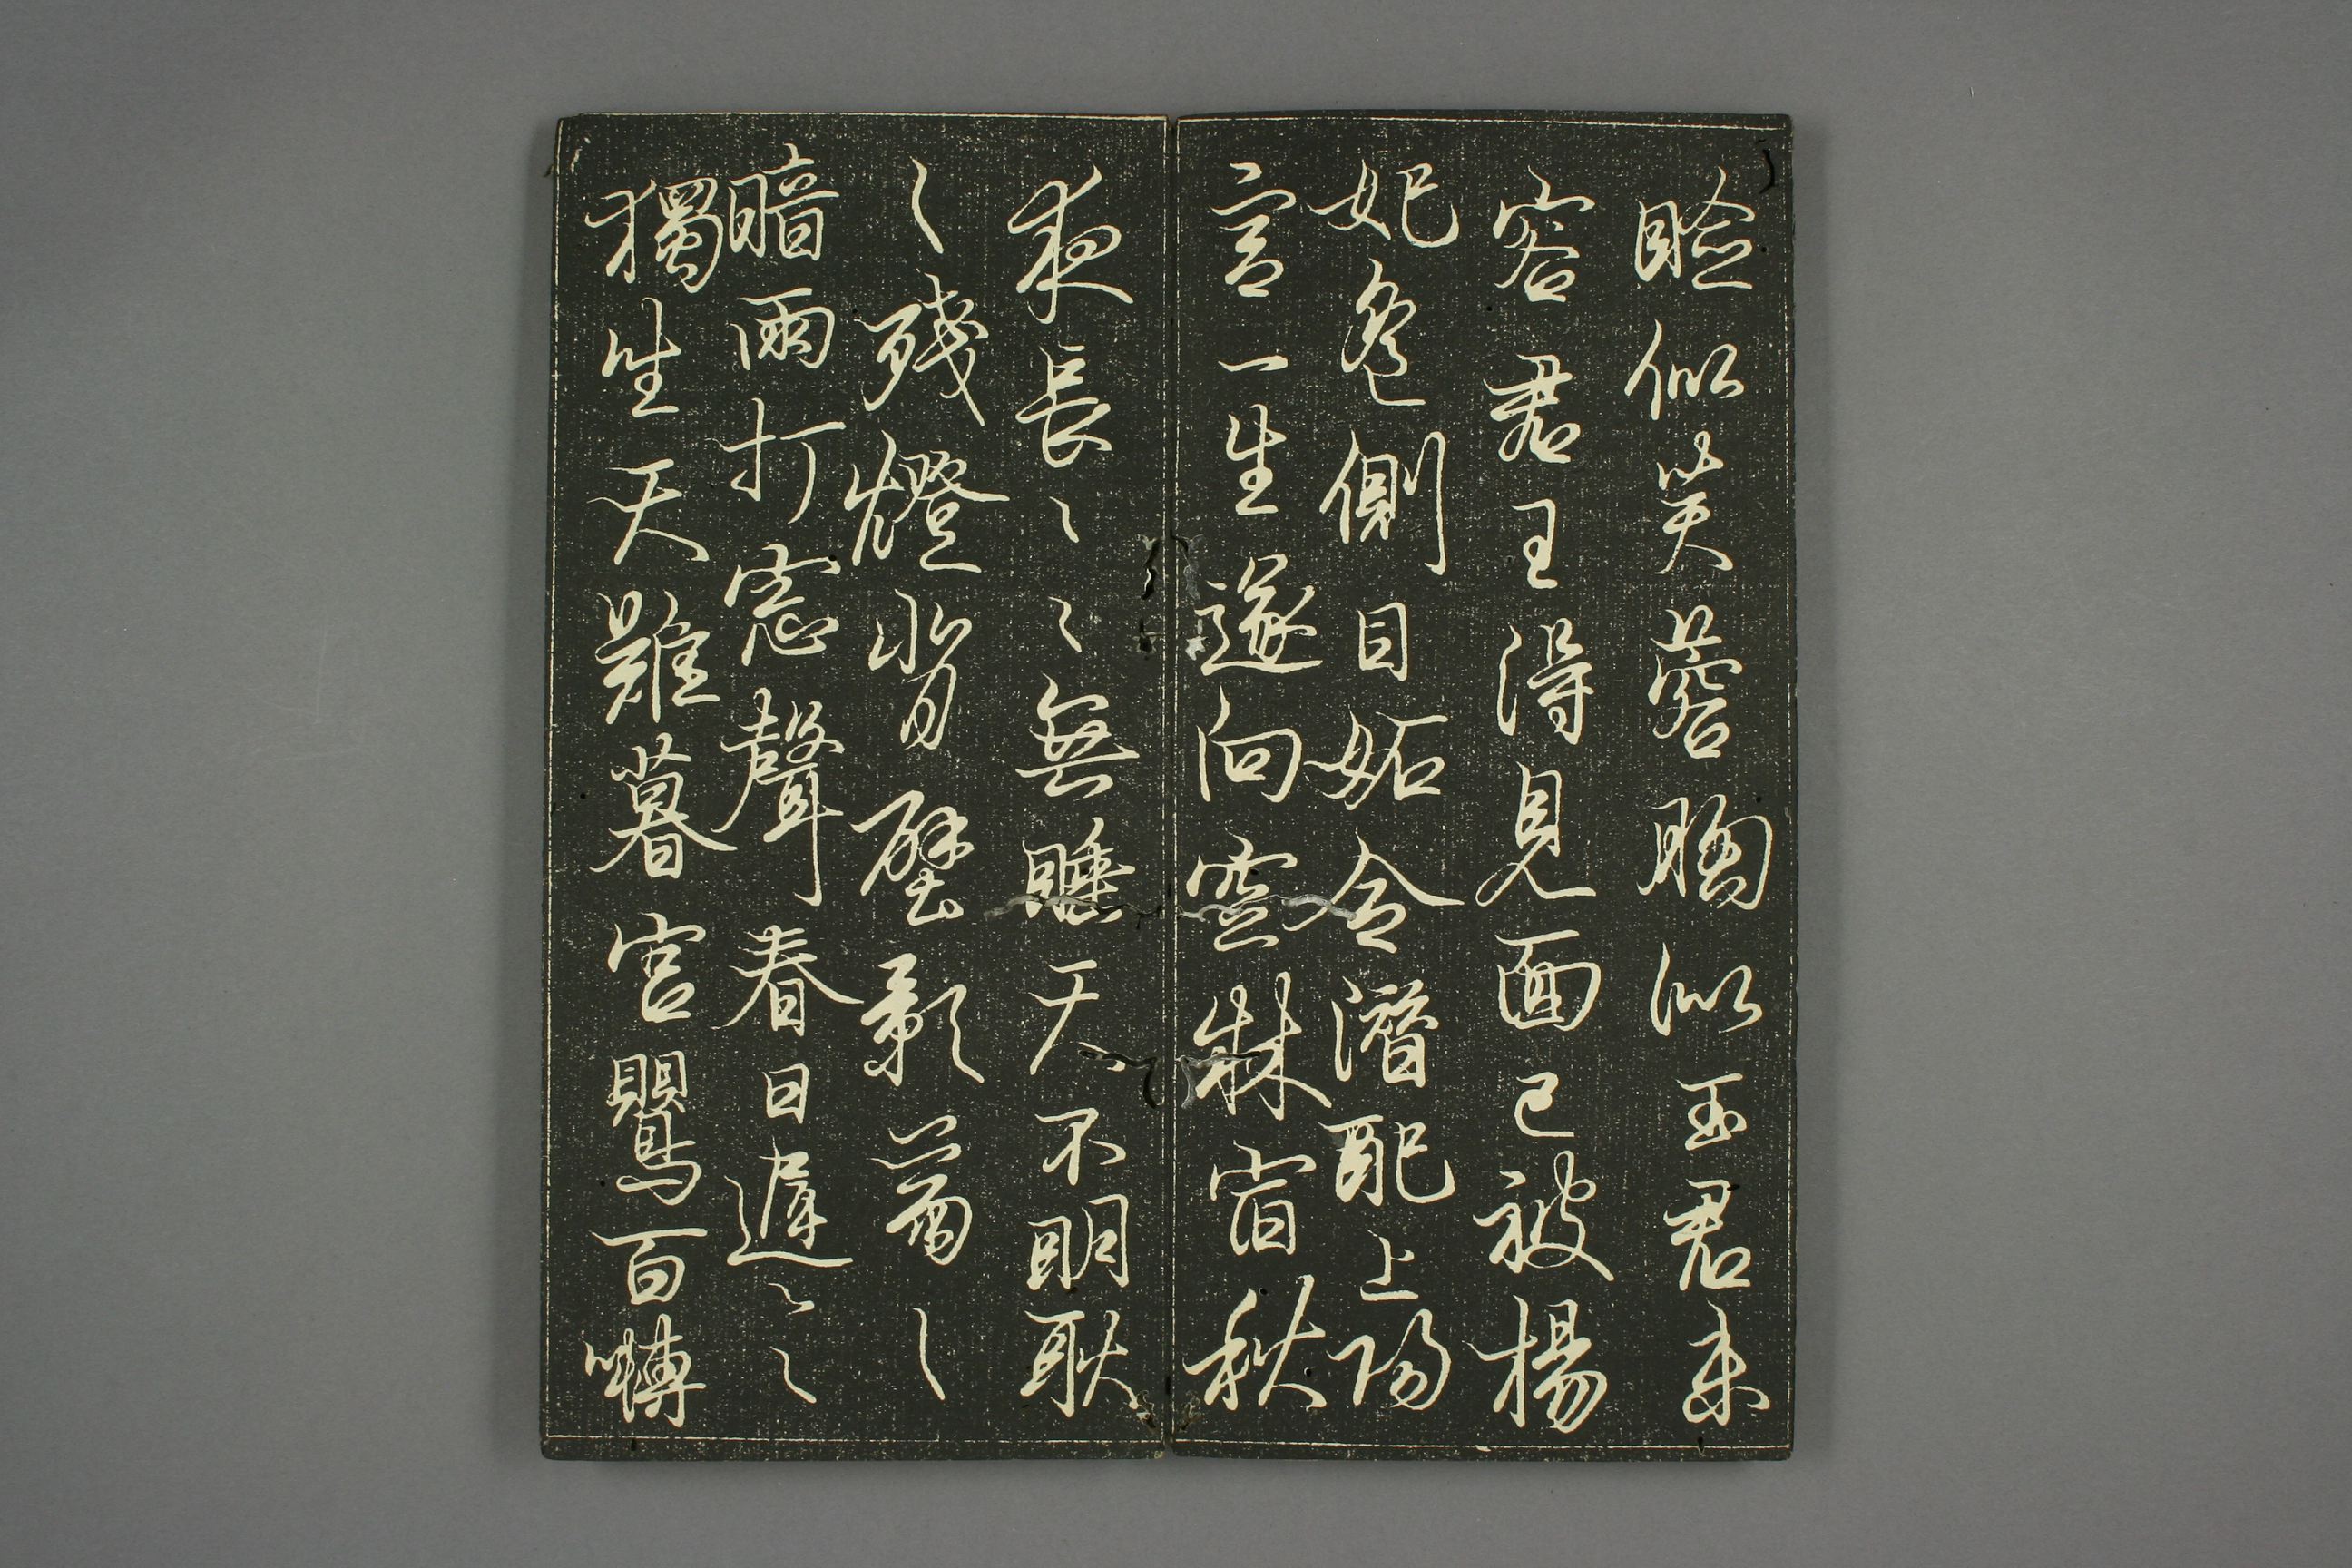 臉似芙蓉胸似玉君未
容君王得見面已被楊
妃遙側目妬令潛配上陽
宮一生遂向空牀宿秋
夜長〻〻無睡天不明耿
〻殘燈背壁影蕭〻
暗雨打窓聲春日遲〻〻
獨坐天難暮宮鸎百囀